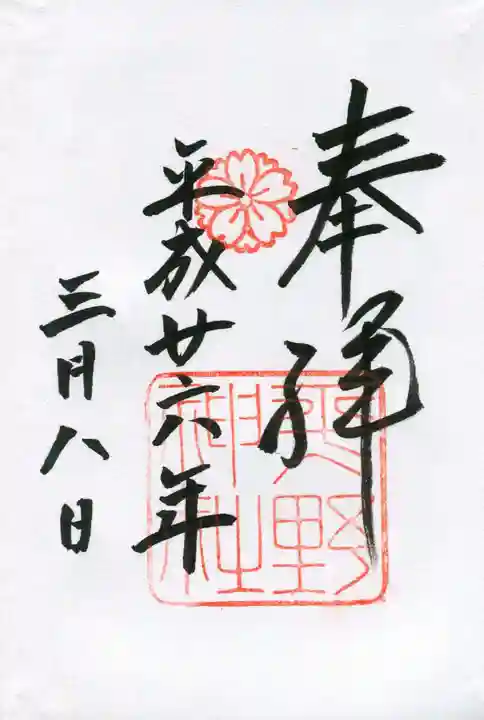 奉拝
平成廿六年
三月八日
野
神社